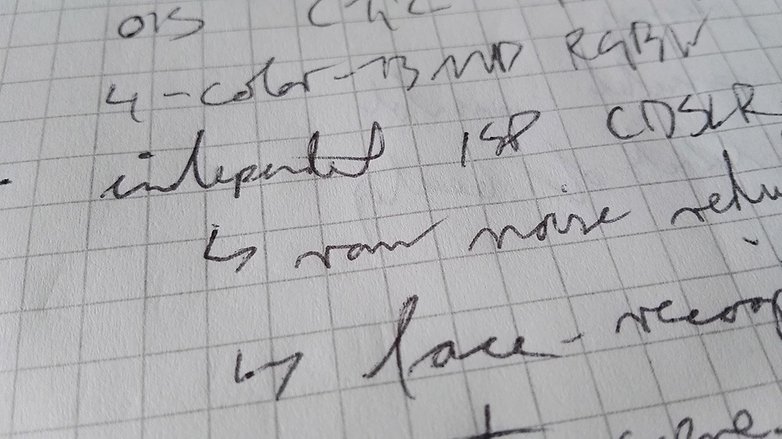 OIS
4-color-BAND RGBW
independent ISP (DSLR
↳ raw noise redu
↳ face-recog